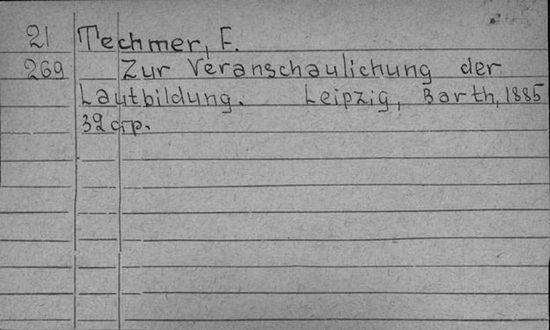 21 Techmer, F.
269 Zur Veranschaulichung der
Lautbildung. Leipzig, Barth, 1885
32 стр.